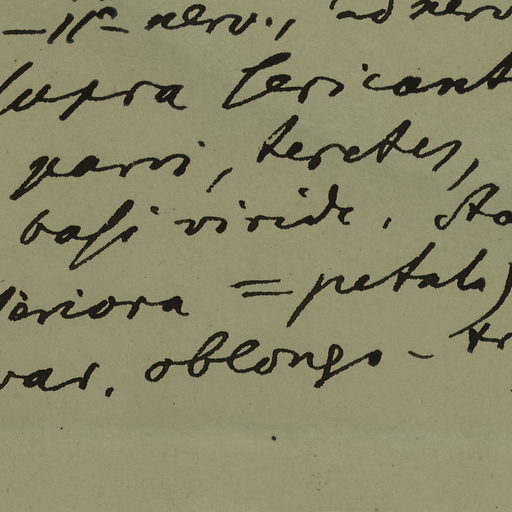 nerv., ad nerv
supra sericant
parvi, teretes,
basi viride. Sta
teriora = petala)
var. oblongo - tr